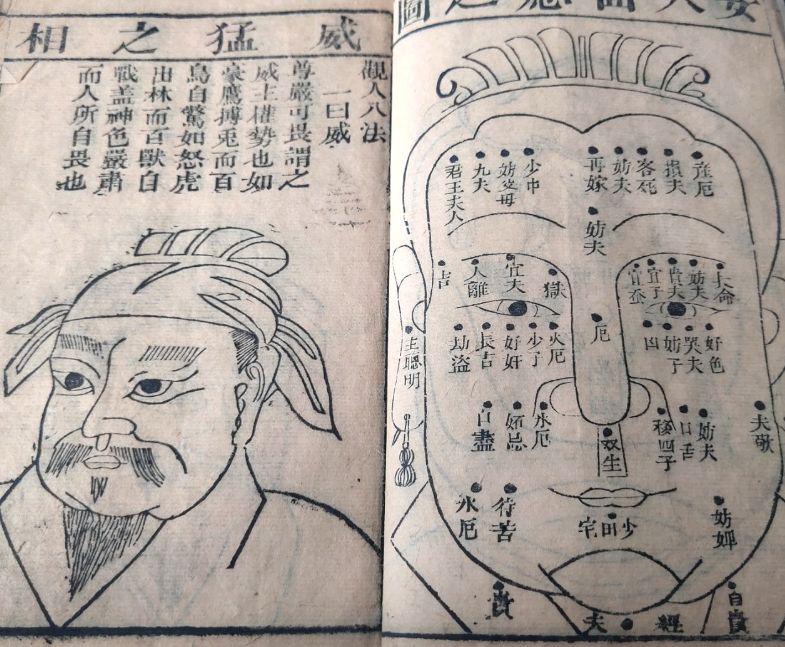 女人面痣之圖
産厄
損夫
客死
妨夫
再嫁
妨夫
妨父母
九夫
君王夫人
長命
妨夫
貴夫
宜子
宜蚕
獄
宜夫
人離
吉
好色
哭夫
妨子
凶
厄
火厄
少子
好奸
長吉
劫盗
主聰明
夫敬
妨夫
口舌
殺四子
双生
水厄
妬忌
自盡
妨婢
少田宅
水厄
經
夫
威猛之相
觀人八法
一曰威
尊嚴可畏謂之
威主權勢也如
豪鷹搏兎而百
鳥自驚如怒虎
出林而百獸自
戰盖神色嚴肅
而人所自畏也